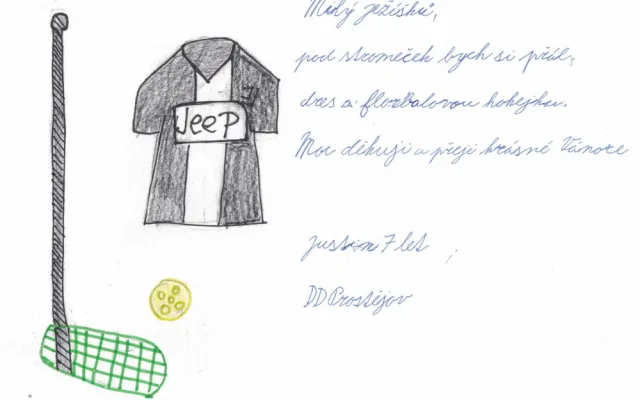 Jeep
Milý ježíšku,
pod stromeček bych si přál,
dres a florbalovou hokejku.
Moc děkuji a přeji krásné Vánoce
Justin 7 let
DD Prostějov